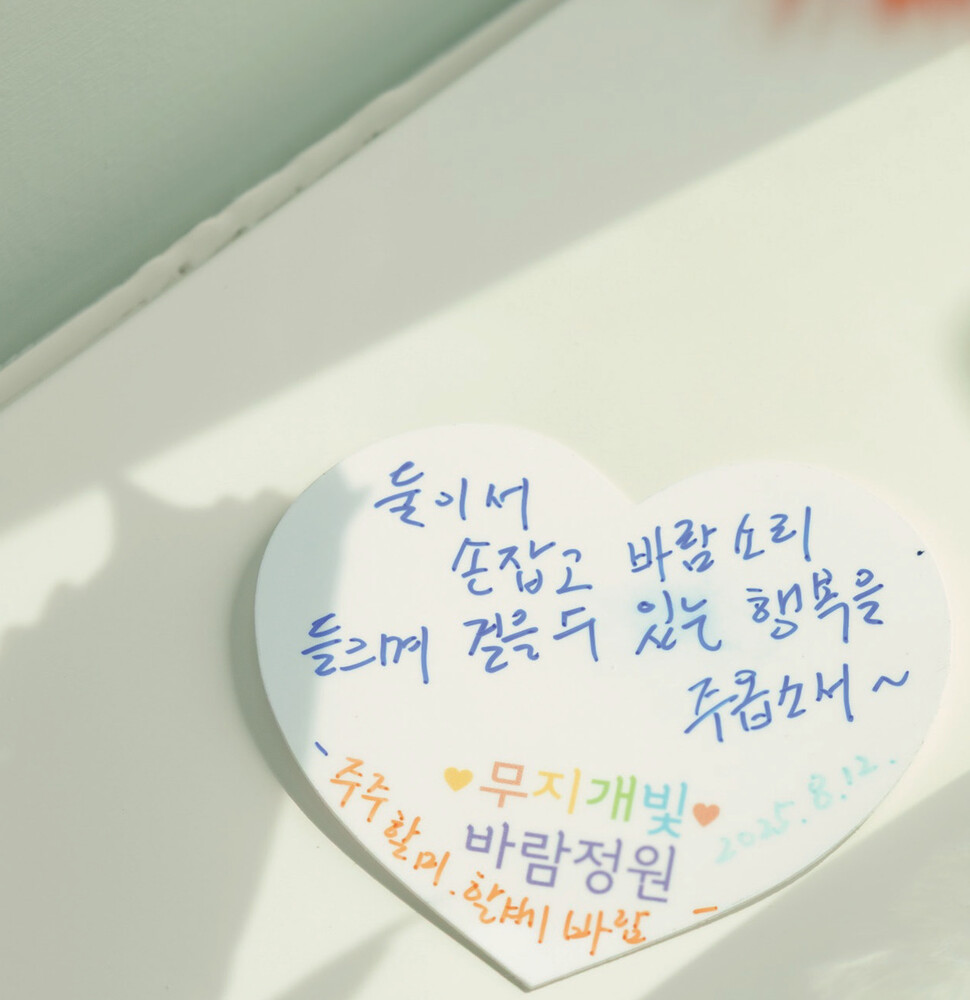 둘이서
손잡고 바람소리
들으며 걸을 수 있는 행복을
주옵소서~
- 주주할미. 할배 바람 -
무지개빛
바람정원
2025.8.12.